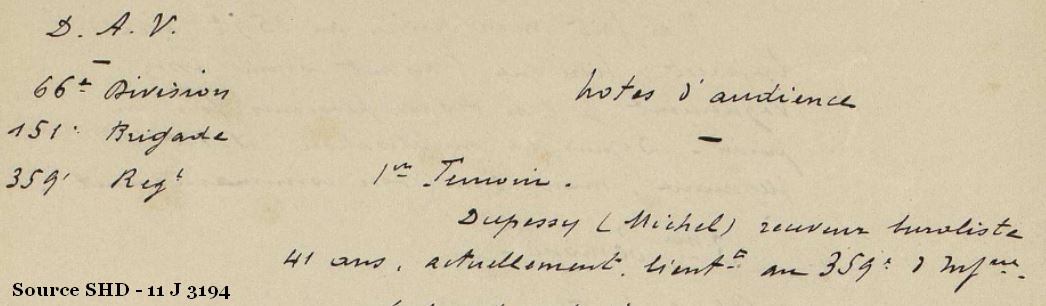 D. A. V.
66e Division
151e Brigade
359e Regt
Notes d'audience
1er Temoin.
Dupessy (Michel) receveur buraliste
41 ans, actuellement, lieutt au 359e d'Infrie.
Source SHD - 11 J 3194